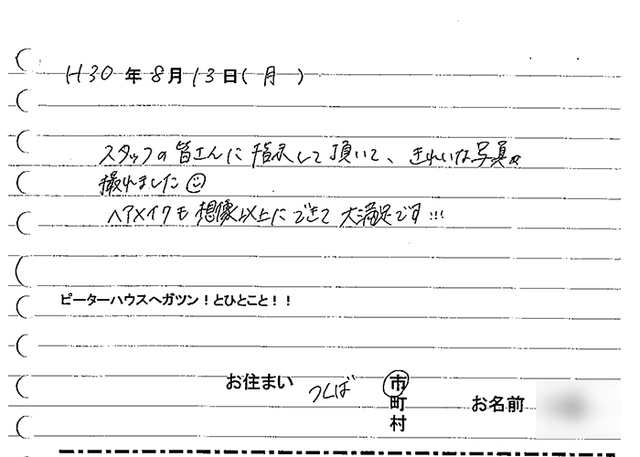 H30年8月13日(月)
スタッフの皆さんに指示して頂いて、きれいな写真が
撮れました
ヘアメイクも想像以上にできて大満足です!!!
ピーターハウスへガツン!とひとこと!!
お住まい つくば 市
町
村
お名前